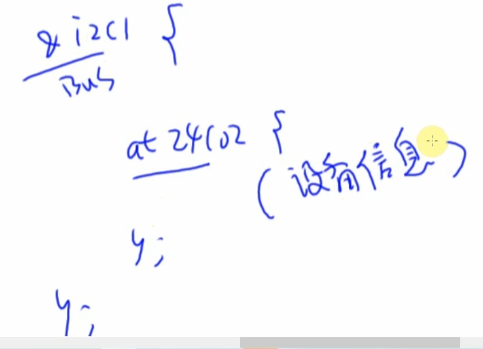 &i2c1 {
Bus
at24c02 {
(设备信息)
};
};